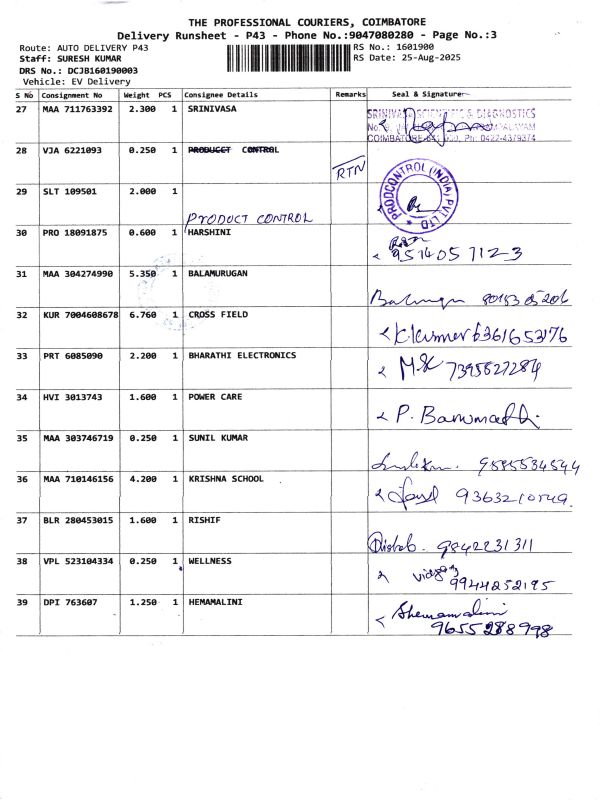 THE PROFESSIONAL COURIERS, COIMBATORE
Delivery Runsheet - P43 - Phone No.:9047080280 - Page No.:3
Route: AUTO DELIVERY P43
RS No.: 1601900
Staff: SURESH KUMAR
RS Date: 25-Aug-2025
DRS No.: DCJB160190003
Vehicle: EV Delivery
S No Consignment No Weight PCS Consignee Details Remarks Seal & Signature
27 MAA 711763392 2.300 1 SRINIVASA
SRINIVASA SCIENTIFIC & DIAGNOSTICS
COIMBATORE Ph: 0422-4379374
28 VJA 6221093 0.250 1 PRODUCCT CONTROL
RTN
PRODCONTROL (INDIA) PVT LTD
29 SLT 109501 2.000 1
PRODUCT CONTROL
30 PRO 18091875 0.600 1 HARSHINI
9514057123
31 MAA 304274990 5.350 1 BALAMURUGAN
32 KUR 7004608678 6.760 1 CROSS FIELD
6361653176
33 PRT 6085090 2.200 1 BHARATHI ELECTRONICS
7395827284
34 HVI 3013743 1.600 1 POWER CARE
P.
35 MAA 303746719 0.250 1 SUNIL KUMAR
36 MAA 710146156 4.200 1 KRISHNA SCHOOL
37 BLR 280453015 1.600 1 RISHIF
9842231311
38 VPL 523104334 0.250 1 WELLNESS
9944252195
39 DPI 763607 1.250 1 HEMAMALINI
9655288998